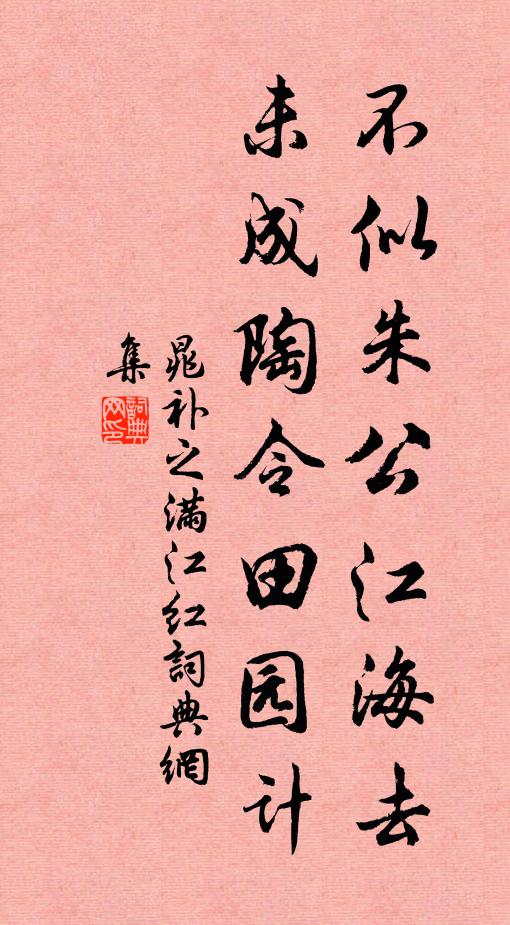 不似朱公江海去
未成陶令田园计
晁补之满江红詞典網
集
詞典网印